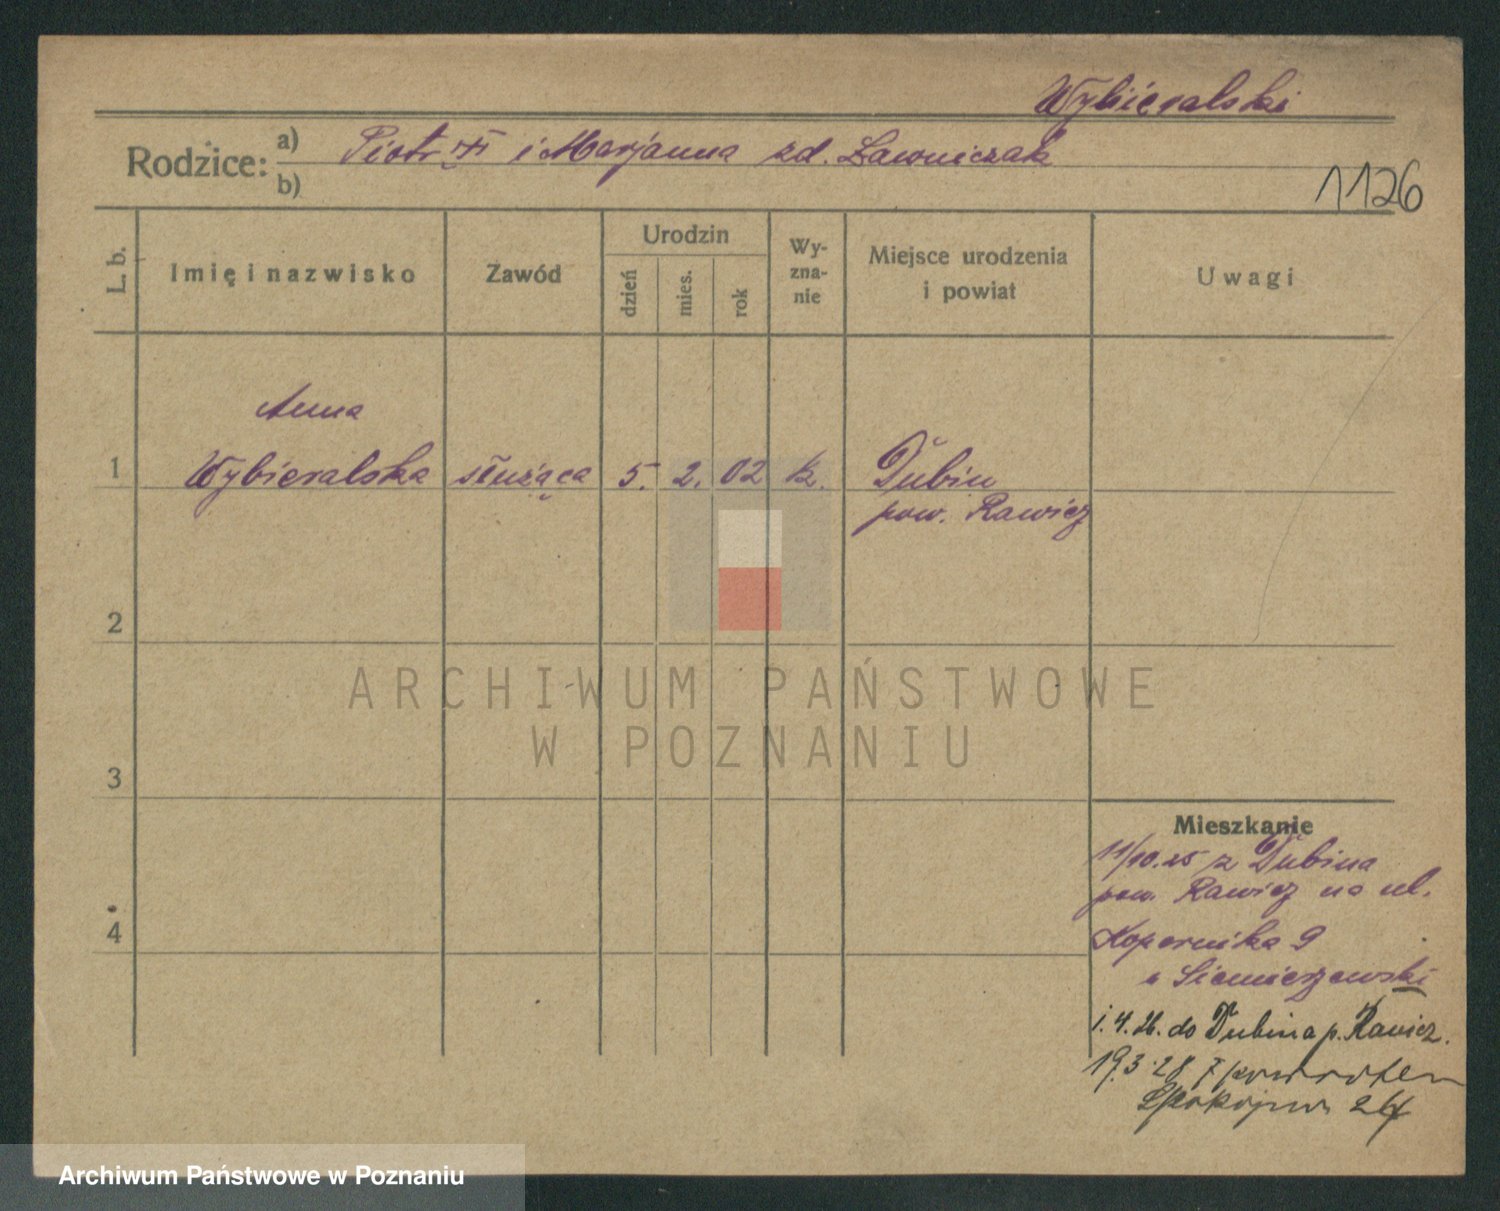 Wybieralski
Rodzice: a) Piotr i Marjanna zd. Ławniczak
b)
1126
L. b.
Imię i nazwisko
Zawód
Urodzin
dzień
mies.
rok
Wy-
zna-
nie
Miejsce urodzenia
i powiat
Uwagi
Anna
1 Wybieralska służąca 5. 2. 02 k. Dubin
pow. Rawicz
2
3
4
ARCHIWUM PAŃSTWOWE
W POZNANIU
Mieszkanie
11/10.25 z Dubina
pow. Rawicz na ul.
Kopernika 9
1.4.26. do Dubina p. Rawicz.
19.3.28 z powrotem
Archiwum Państwowe w Poznaniu